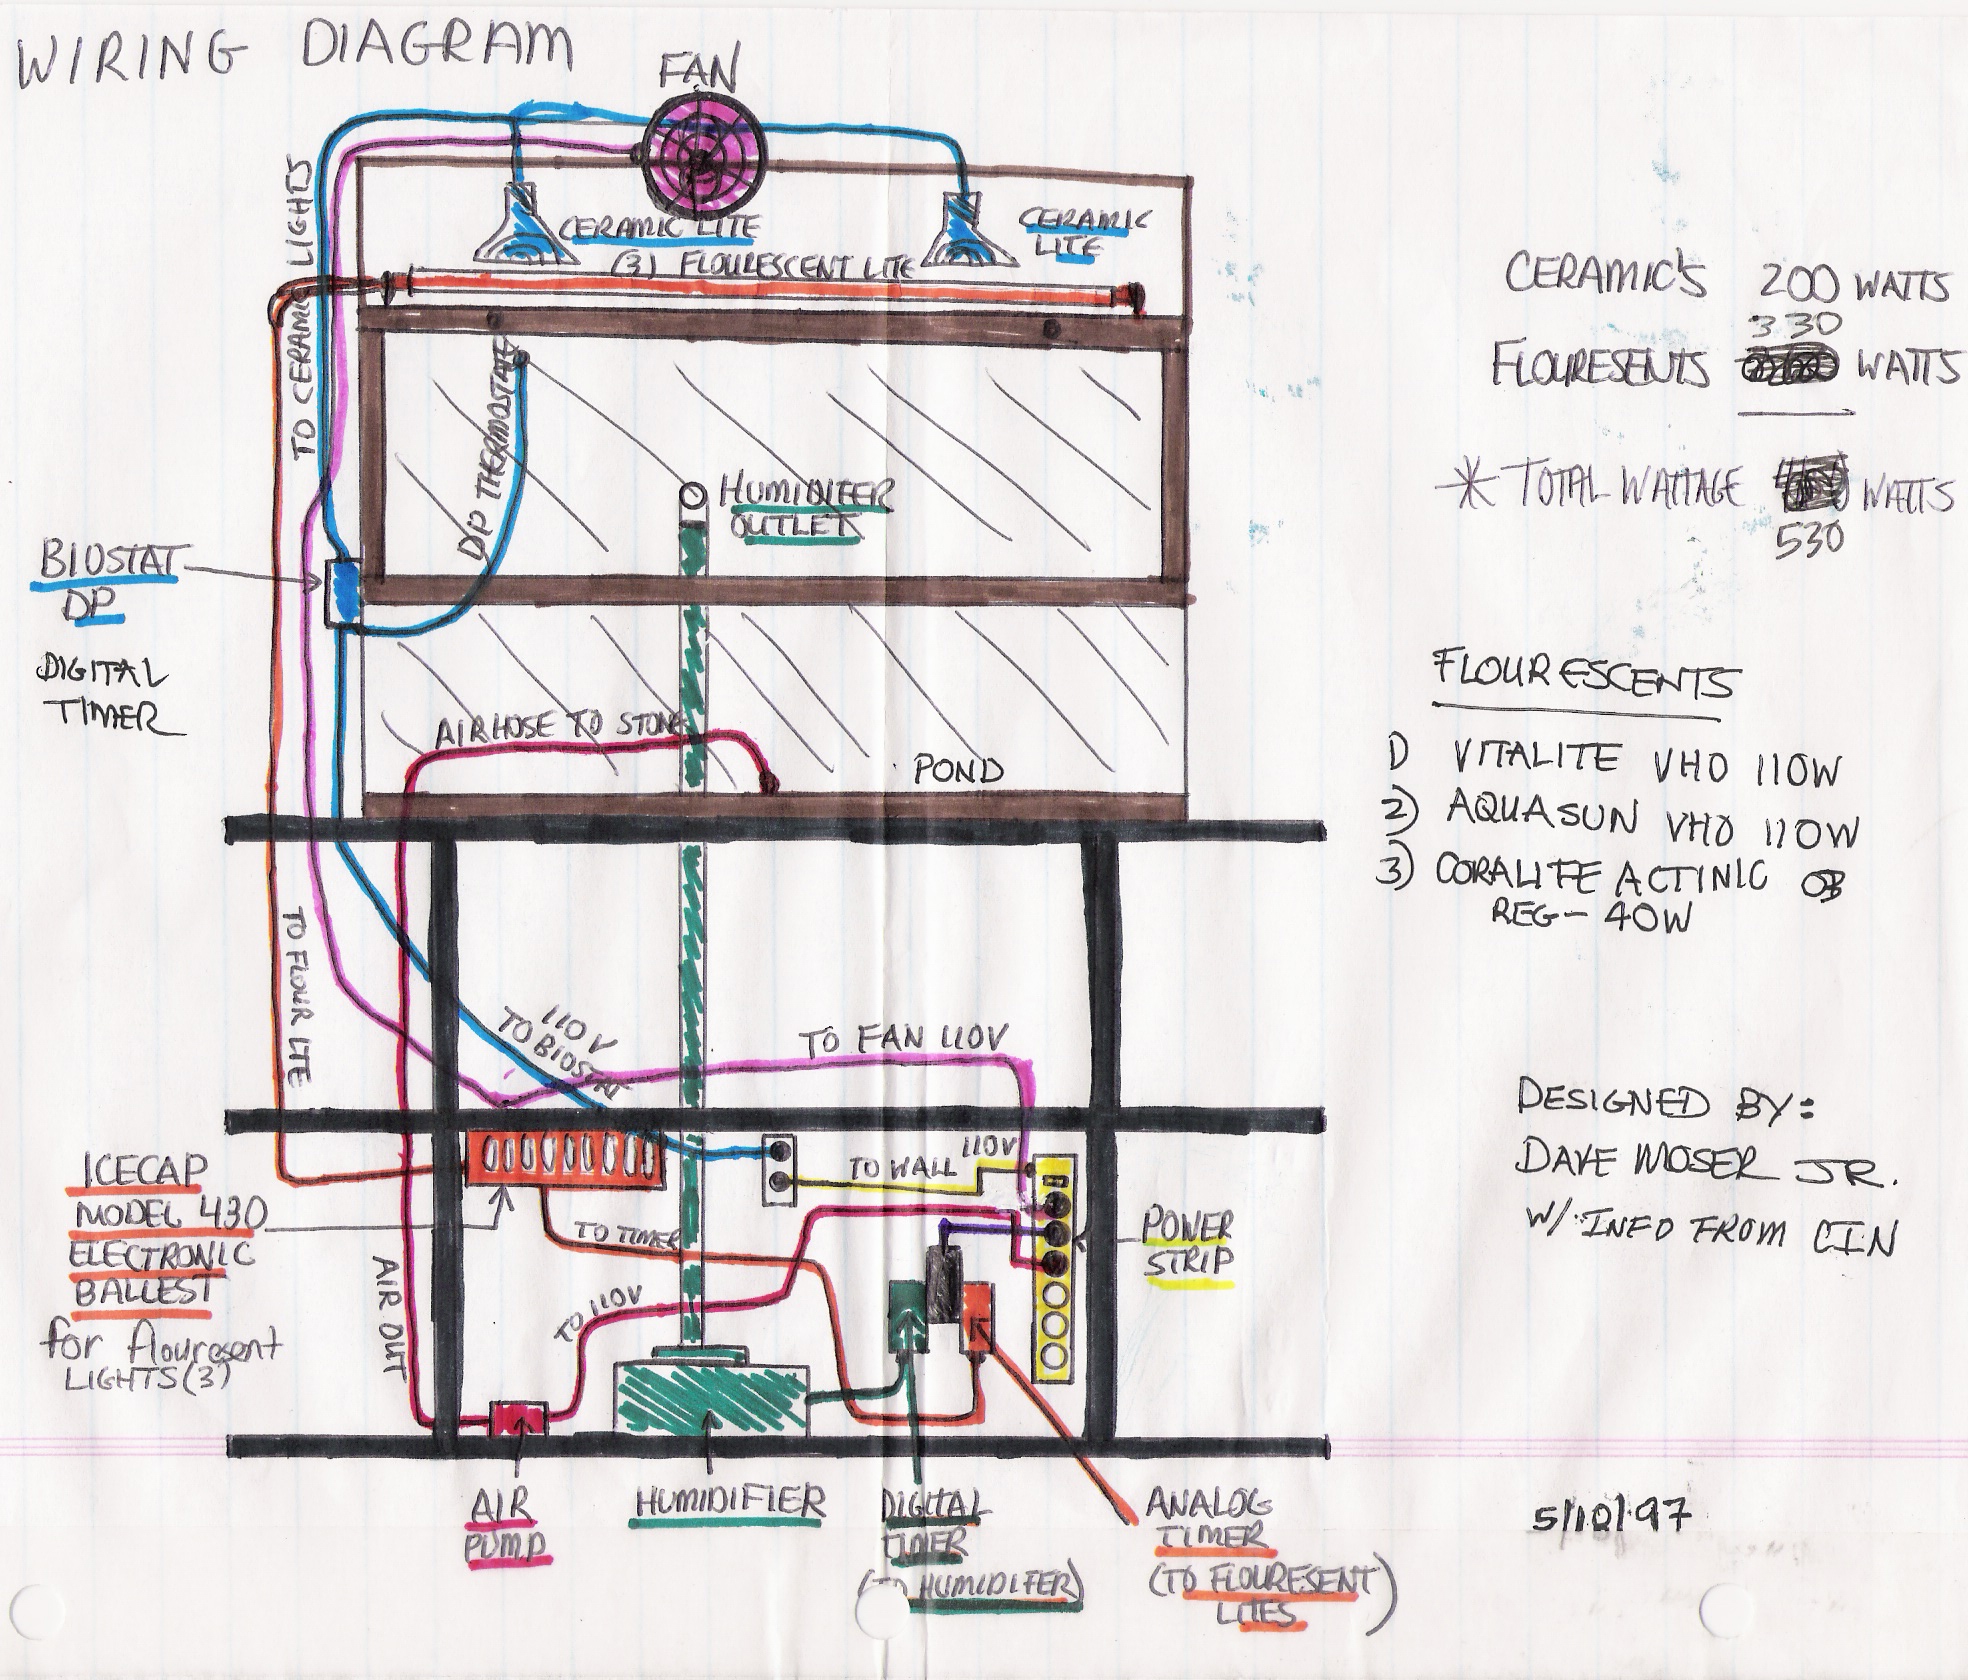 WIRING DIAGRAM
FAN
CERAMIC LITE
CERAMIC
LITE
(3) FLOURESCENT LITE
TO CERAMIC LIGHTS
DP THERMOSTAT
HUMIDIFER
OUTLET
BIOSTAT
DP
DIGITAL
TIMER
AIRHOSE TO STONE
POND
TO FLOUR LTE
110V
TO BIOSTAT
TO FAN 110V
TO WALL 110V
ICECAP
MODEL 430
ELECTRONIC
BALLEST
for flouresent
LIGHTS (3)
TO TIMER
TO 110V
AIR OUT
POWER
STRIP
AIR
PUMP
HUMIDIFIER
DIGITAL
TIMER
(TO HUMIDIFER)
ANALOG
TIMER
(TO FLOURESENT
LITES)
CERAMIC'S 200 WATTS
330
FLOURESENTS WATTS
* TOTAL WATTAGE WATTS
530
FLOURESCENTS
1) VITALITE VHO 110W
2) AQUASUN VHO 110W
3) CORALIFE ACTINIC 03
REG - 40W
DESIGNED BY:
DAVE MOSER JR.
W/ INFO FROM CIN
5/10/97